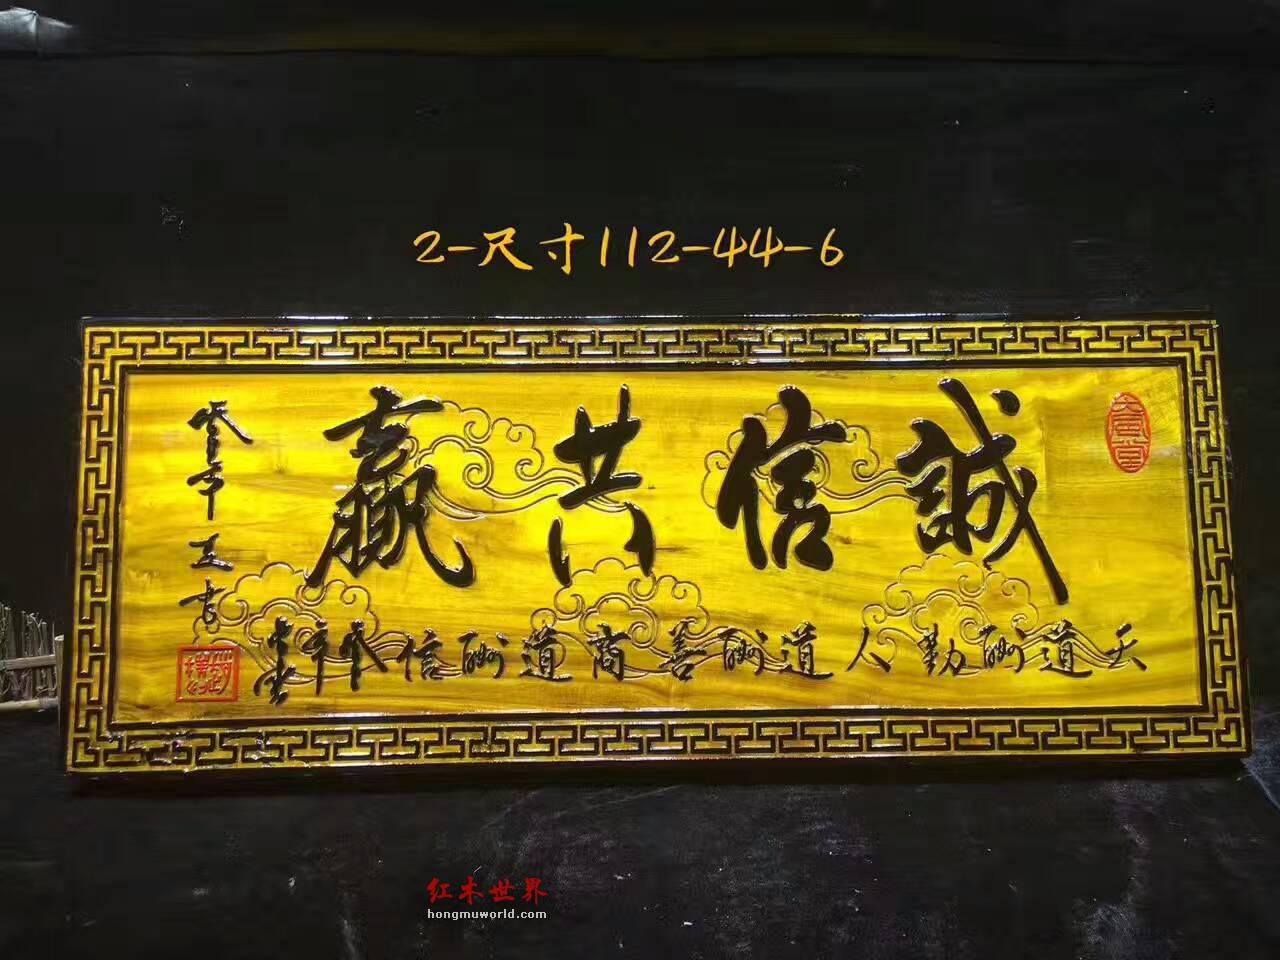 2-尺寸112-44-6
誠信共贏
天道酬勤人道酬善商道酬信
红木世界
hongmuworld.com